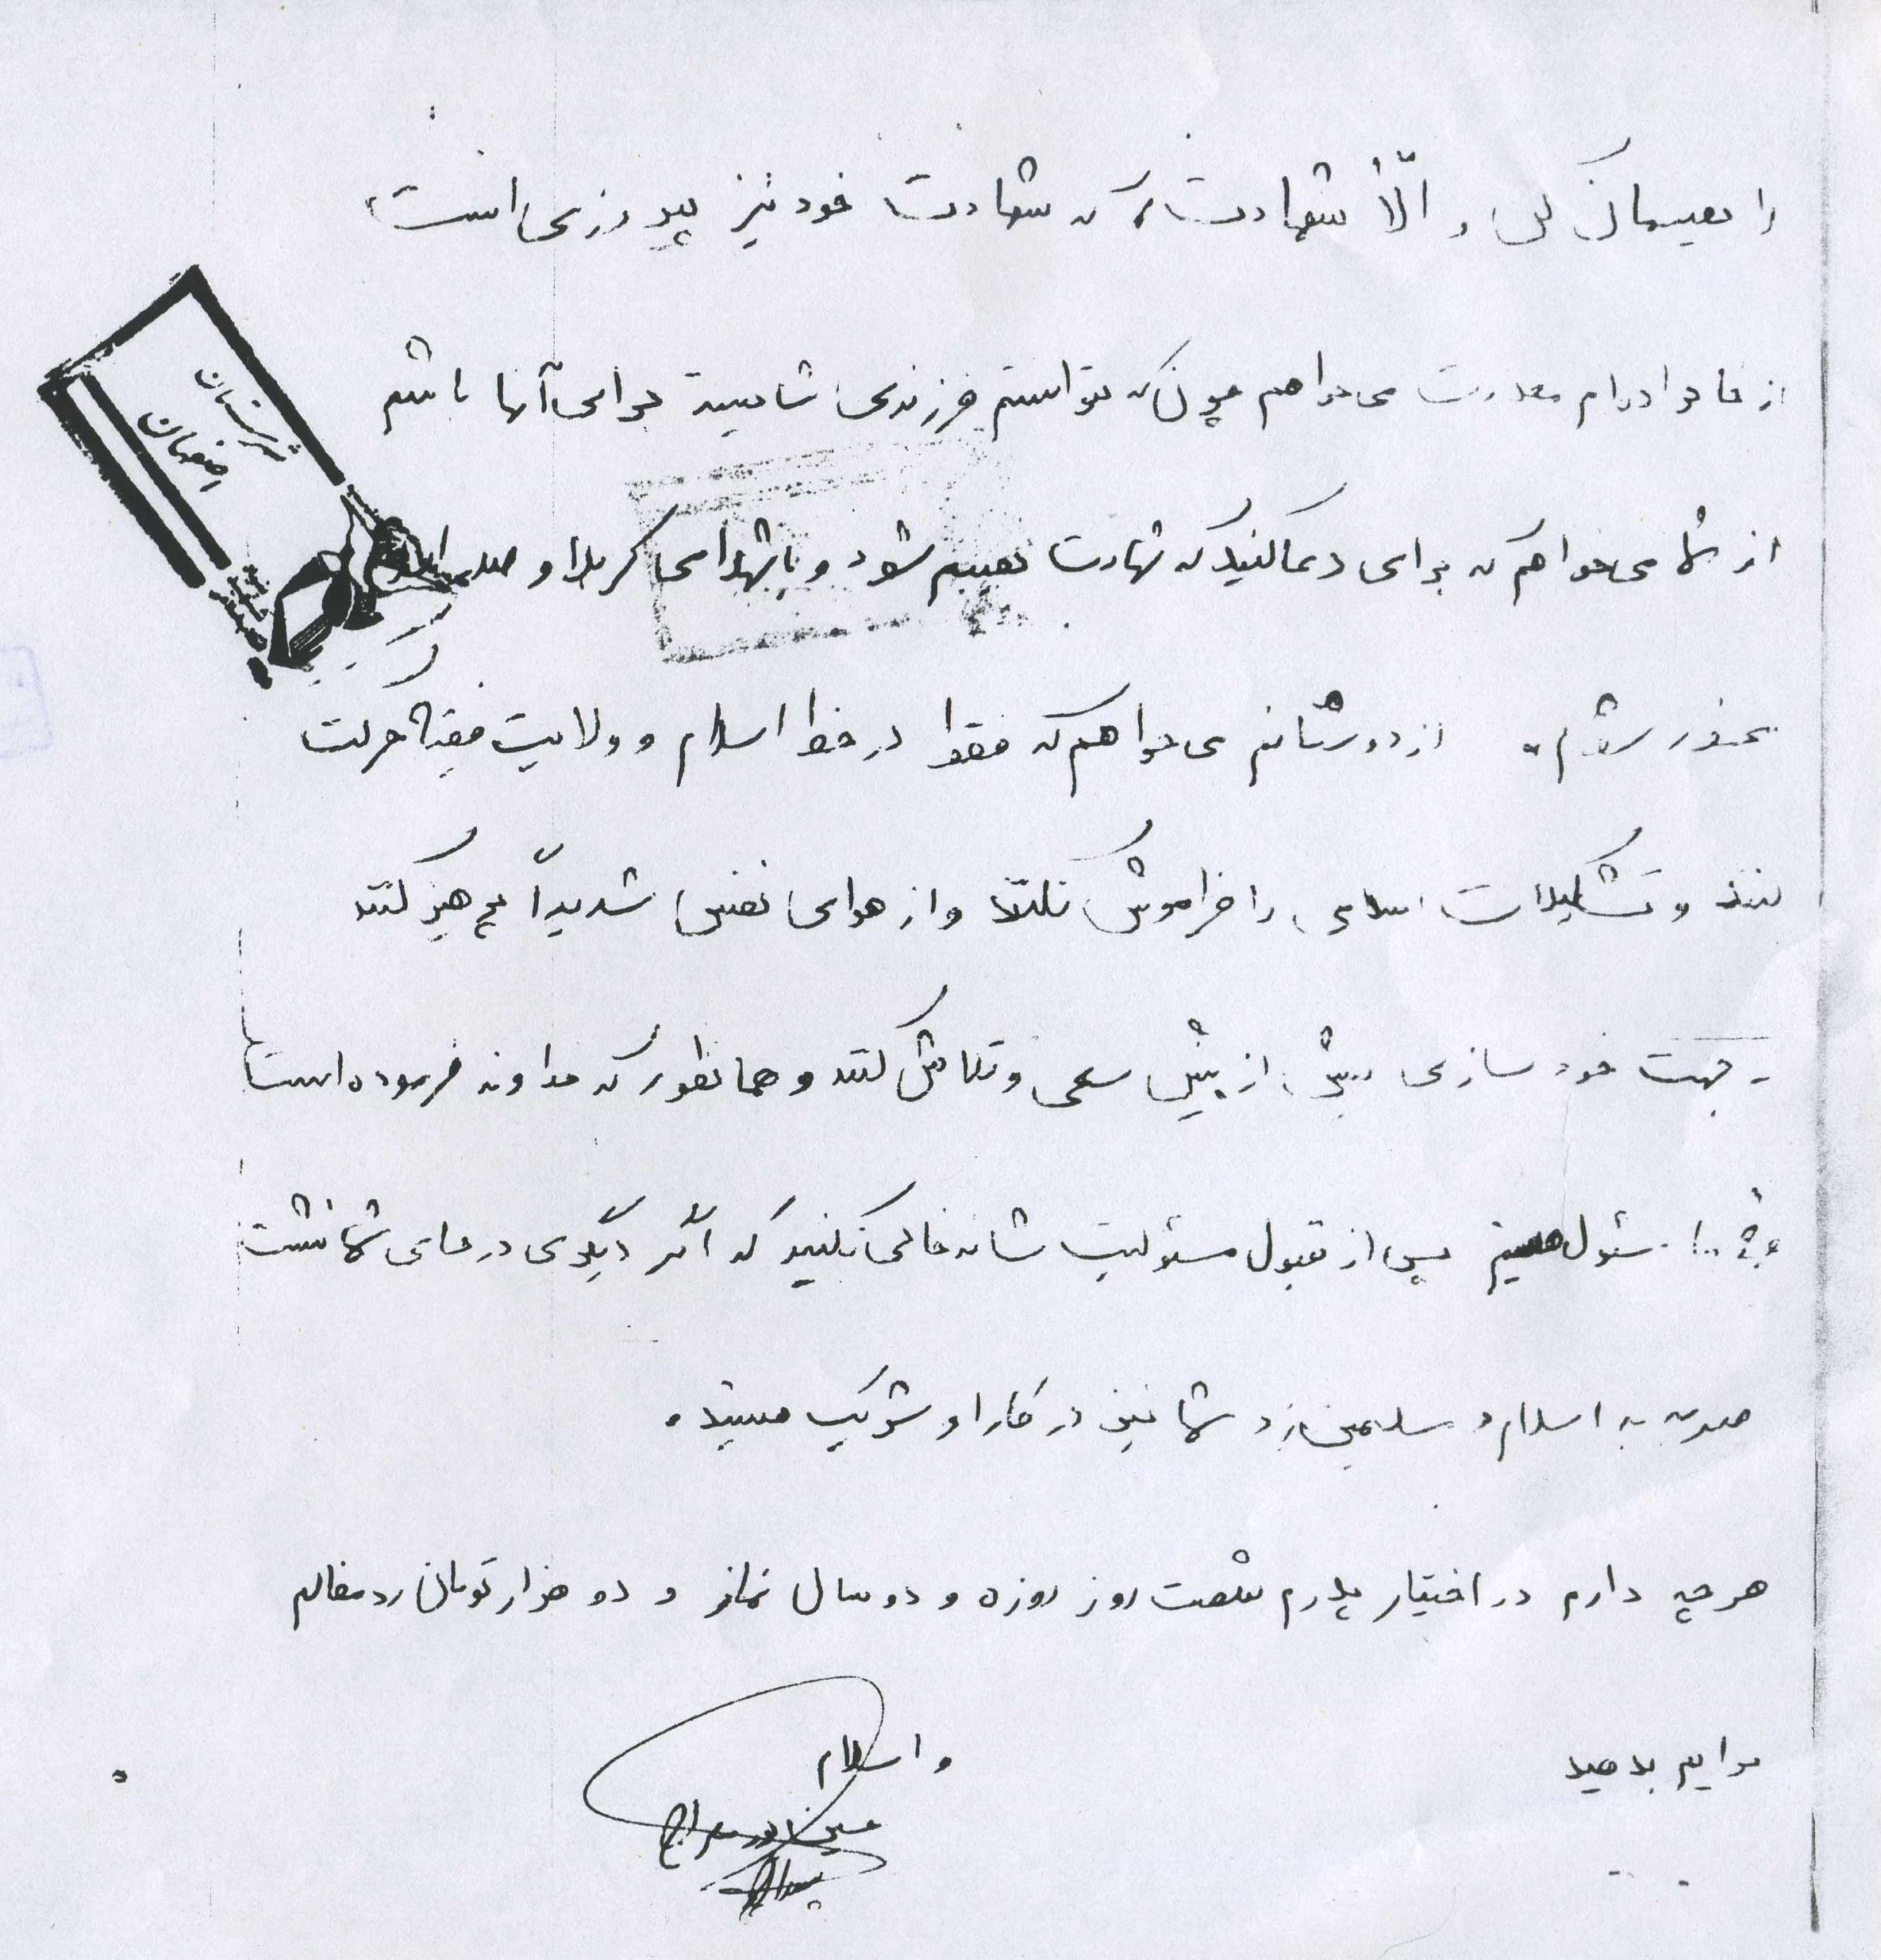 را نصیبمان کن و الّا شهادت را که شهادت خود نیز پیروزی است
از خانواده‌ام معذرت می‌خواهم چون که نتوانستم فرزندی شایسته برای آنها باشم
از شما می‌خواهم که برای دعا کنید که شهادت نصیبم شود و با شهدای کربلا و
محشور شوم. از دوستانم می‌خواهم که فقط در خط اسلام و ولایت فقیه حرکت
کنند و تشکیلات اسلامی را فراموش نکنند و از هوای نفس شدیداً پرهیز کنند
جهت خودسازی بیش از پیش سعی و تلاش کنند و همانطور که خداوند فرموده است
مسئول هستیم پس از قبول مسئولیت شانه خالی نکنید که اگر دیگری در جای شما نشست
ضربه به اسلام و مسلمین زد شما نیز در کار او شریک هستید.
هر چه دارم در اختیار پدرم شصت روز روزه و دو سال نماز و دو هزار تومان رد مظالم
برایم بدهید
والسلام